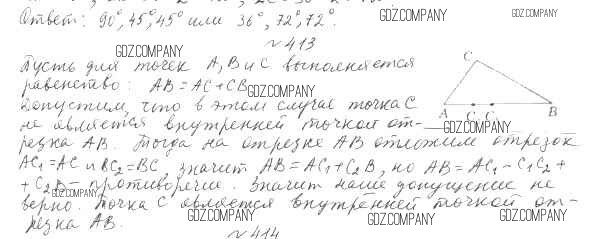 Ответ: 90°, 45°, 45° или 36°, 72°, 72°.
GDZ.COMPANY
№413
GDZ.COMPANY
Пусть для точек A, B и C выполняется
равенство: AB = AC + CB
GDZ.COMPANY
Допустим, что в этом случае точка C
не является внутренней точкой от-
резка AB. Тогда на отрезке AB отложим отрезок
AC₁ = AC и BC₂ = BC, значит AB = AC₁ + C₂B, но AB = AC₁ - C₁C₂ +
+ C₂B – противоречие. Значит наше допущение не
верно. Точка C является внутренней точкой от-
резка AB.
C
A
B
GDZ.COMPANY
GDZ.COMPANY
GDZ.COMPANY
GDZ.COMPANY
GDZ.COMPANY
GDZ.COMPANY
№414